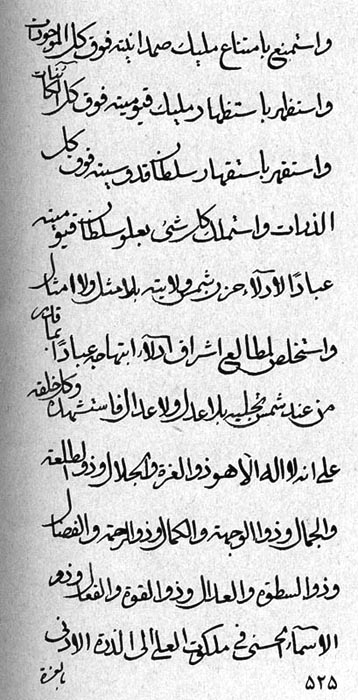 واستمنع بامتناع مليك صمدانيته فوق كل الموجودات
واستظهر باستظهار مليك قيوميته فوق كل الكائنات
واستقهر باستقهار سلطان قدوسيته فوق كل
الذرات واستملك كل شئ بعلو سلطان قيوميته
عبادًا الادلاء حزب شمس ولايته بلا مثل ولا امثال
واستخلص لمطالع اشراق ادلاء ابتهاجه عبادًا
من عند شمس تجليه بلا عدل ولا عدال فاستشهده وكل خلقه
على انه لا اله الا هو ذو العزة والجلال وذو الطلعة
والجمال وذو الوجهة والكمال وذو الرحمة والفضال
وذو السطوة والعدال وذو القوة والفعال وذو
الاسماء الحسنى فى ملكوت العلى الى الذرة الادنى
بالعزة
٥٢٥